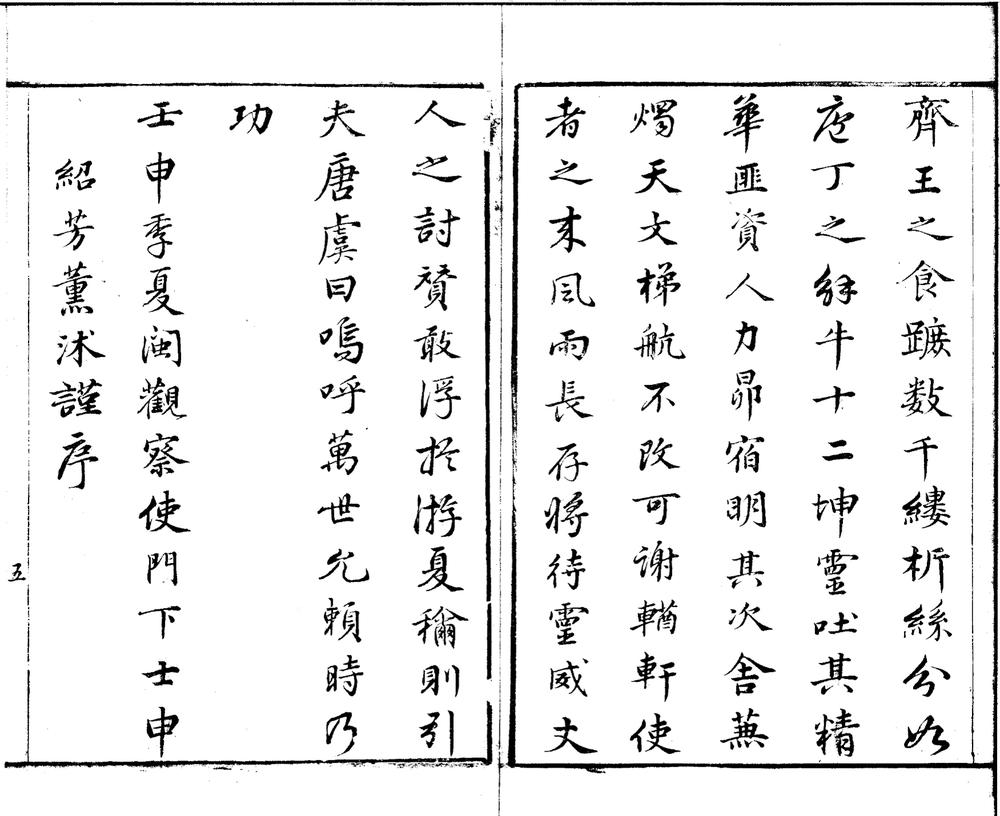 齊王之食蹠数千縷析絲分如
庖丁之解牛十二坤靈吐其精
華匪資人力昴宿明其次舍蕪
燭天文梯航不改可謝輶軒使
者之來風雨長存將待靈威丈
人之討賛敢浮於游夏稱則引
夫唐虞曰嗚呼萬世允賴時乃
功
壬申季夏閩觀察使門下士申
紹芳薰沐謹序
五